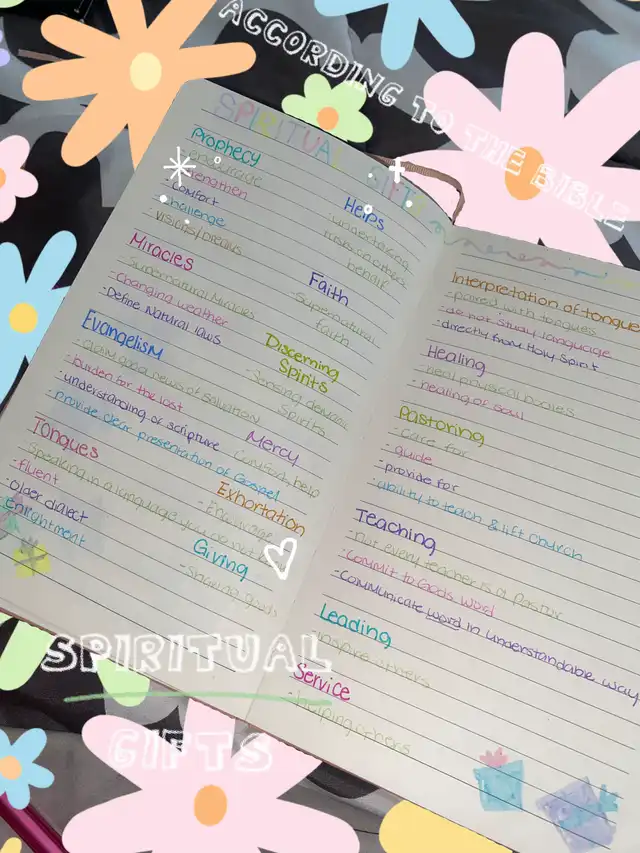 ACCORDING TO THE BIBLE
SPIRITUAL GIFTS
Prophecy
strengthen
comfort
challenge
visions/dreams
Miracles
Supernatural Miracles
changing weather
Define Natural laws
Evangelism
news of salvation
burden for the lost
understanding of scripture
provide clear presentation of Gospel
Tongues
speaking in a language you do not
fluent
older dialect
Helps
behalf
Faith
Supernatural
faith
Discerning
Spirits
Sensing demonic
Spirits
Mercy
comfort, help
Exhortation
Encourage
Giving
sharing goods
Interpretation of tongue
paired with tongues
do not study language
directly from Holy Spirit
Healing
heal physical bodies
healing of soul
Pastoring
care for
guide
provide for
ability to teach & lift church
Teaching
not every teacher is a Pastor
Commit to Gods word
Communicate word in understandable way
Leading
inspire others
Service
helping others
SPIRITUAL
GIFTS